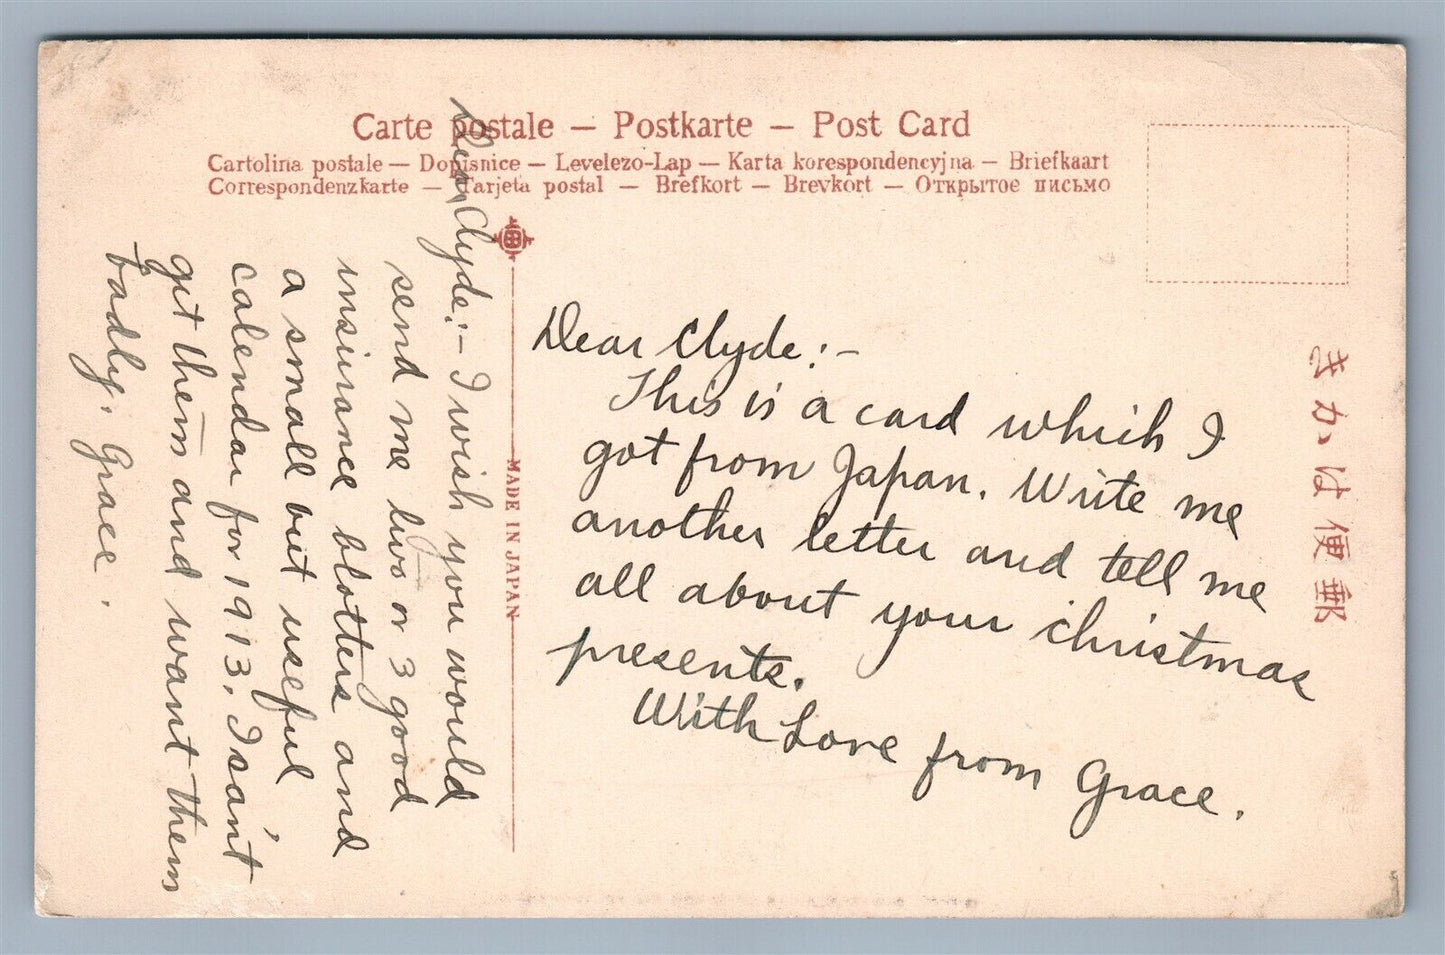 Carte postale — Postkarte — Post Card
Cartolina postale — Dopisnice — Levelezo-Lap — Karta korespondencyjna — Briefkaart
Correspondenzkarte — Tarjeta postal — Brefkort — Brevkort — Открытое письмо
きかは便郵
MADE IN JAPAN
Dear Clyde:-
This is a card which I
got from Japan. Write me
another letter and tell me
all about your christmas
presents.
With Love from Grace.
Dear Clyde:- I wish you would
send me two or 3 good
insurance blotters and
a small but useful
calendar for 1913. I san't
git them and want them
badly. Grace.